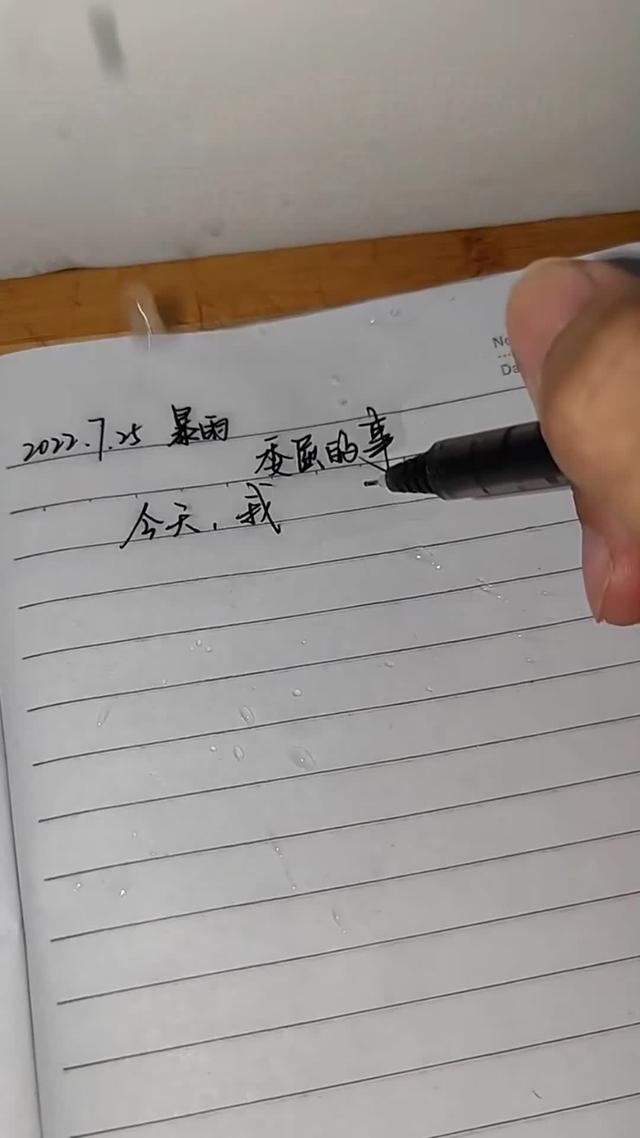 No
Da
2022.7.25 暴雨
委屈的事
今天，我